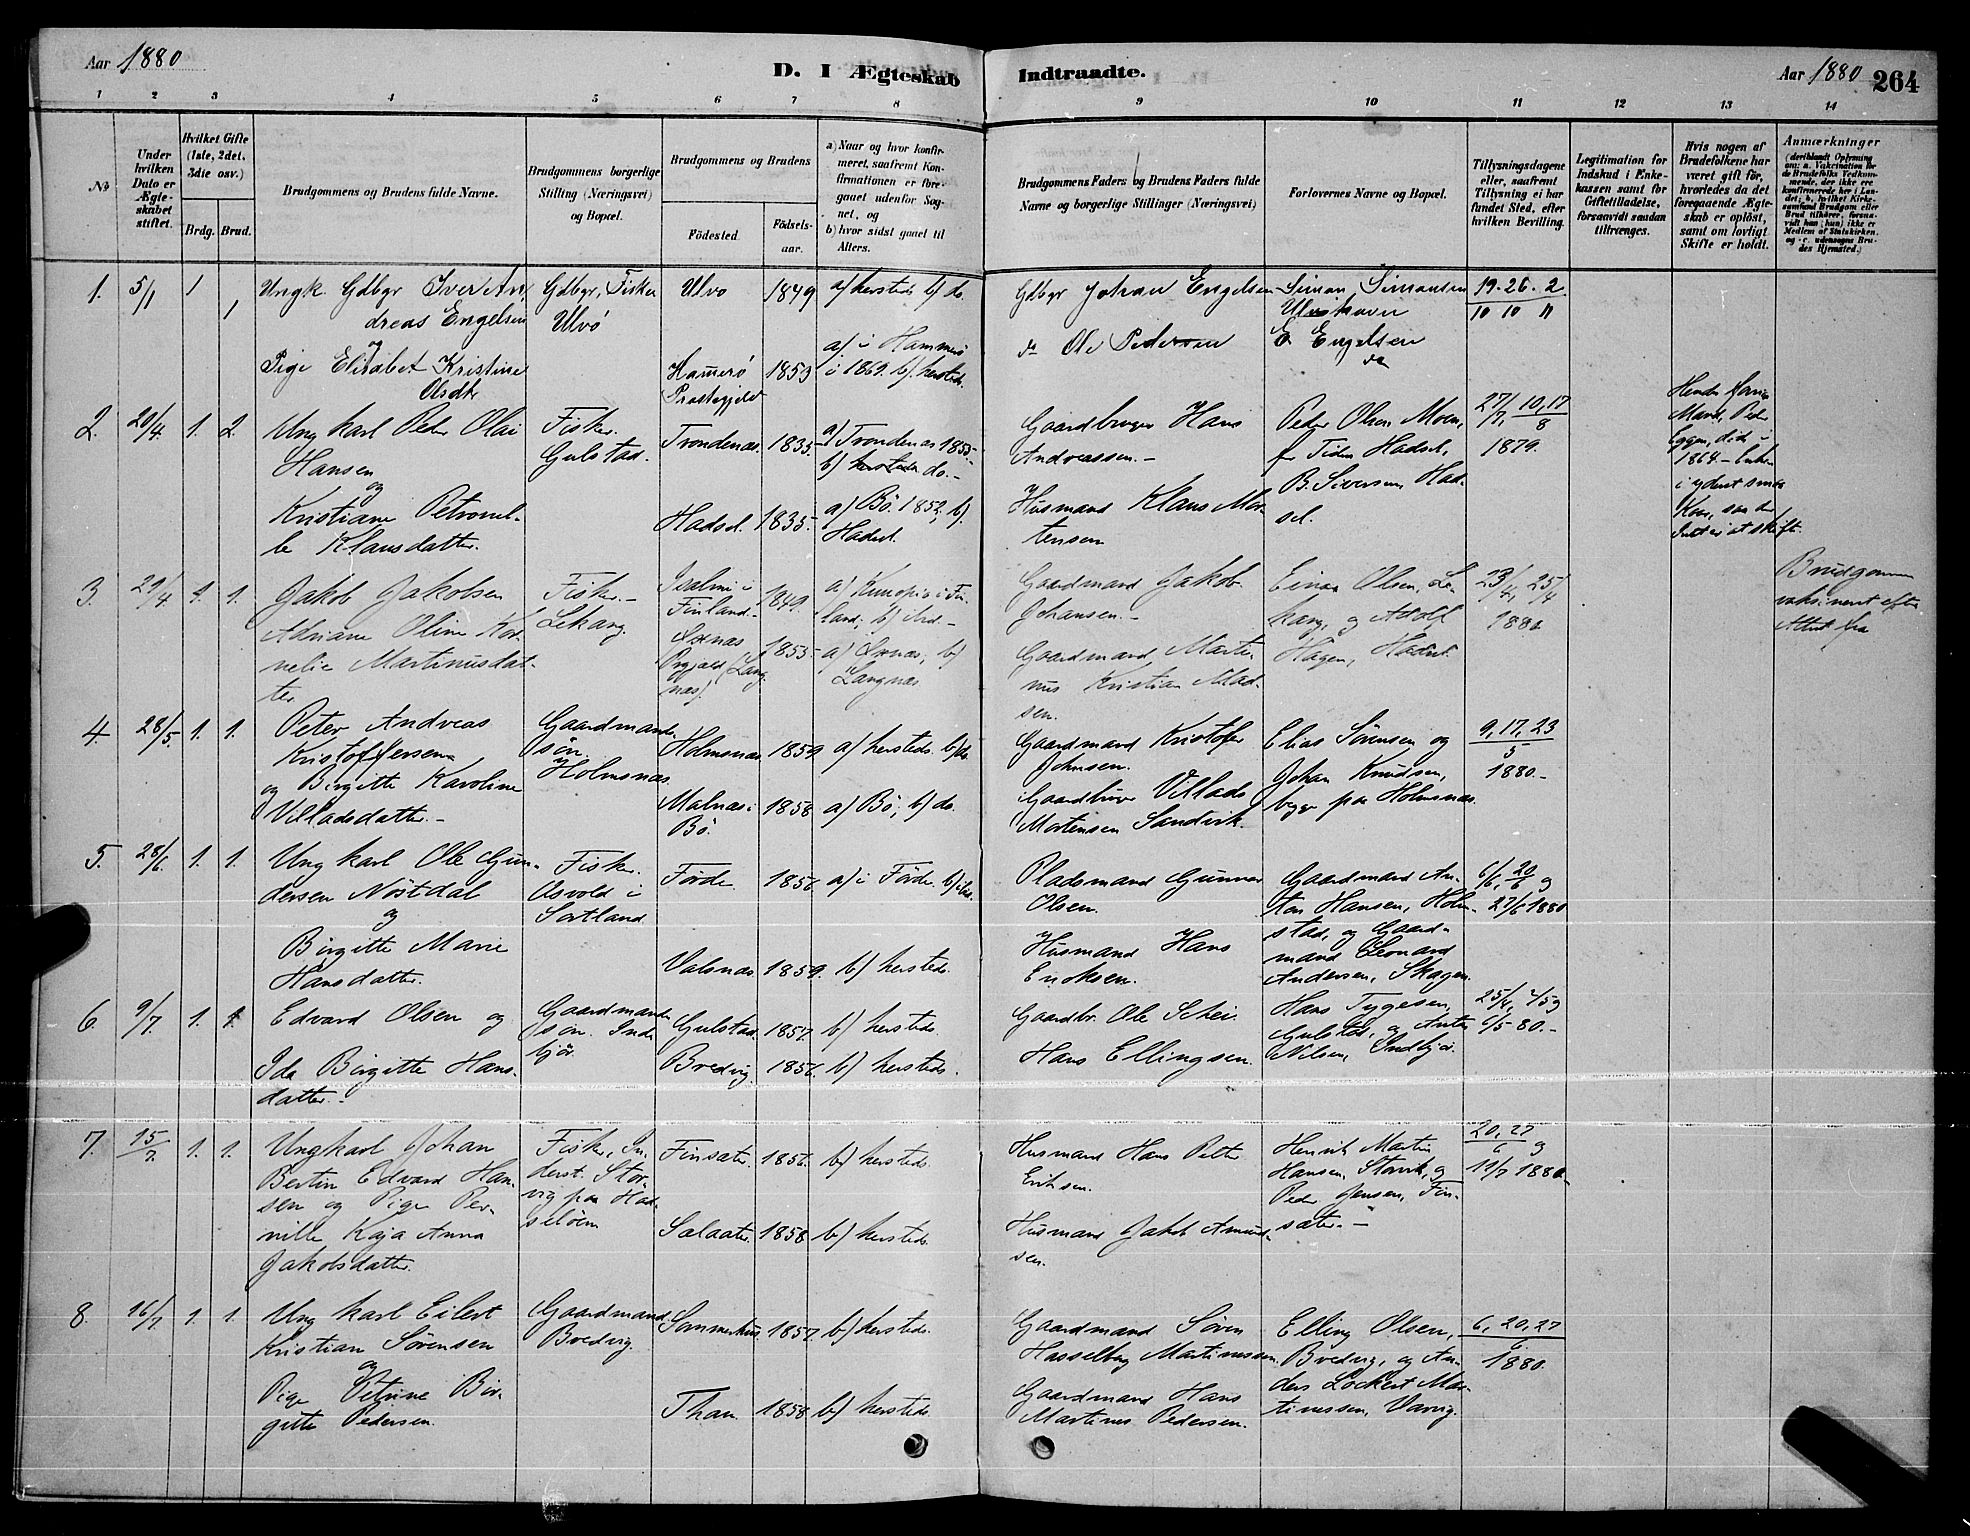 Aar 1880
D. I Ægteskab Indtraadte.
Aar 1880 264
1 2 3 4 5 6 7 8 9 10 11 12 13 14
No
Under hvilken Dato er Ægteskabet stiftet.
Hvilket Gifte (1ste, 2det, 3die osv.)
Brdg. Brud.
Brudgommens og Brudens fulde Navne.
Brudgommens borgerlige Stilling (Næringsvei) og Bopæl.
Brudgommens og Brudens
Fødested.
Fødselsaar.
a) Naar og hvor konfirmeret, saafremt Konfirmationen er foregaaet udenfor Sognet, og
b) hvor sidst gaaet til Alters.
Brudgommens Faders og Brudens Faders fulde Navne og borgerlige Stillinger (Næringsvei)
Forlovernes Navne og Bopæl.
Tillysningsdagene eller, saafremt Tillysning ei har fundet Sted, efter hvilken Bevilling.
Legitimation for Indskud i Enkekassen samt for Giftetilladelse, forsaavidt saadan tiltrænges.
Hvis nogen af Brudefolkene har været gift før, hvorledes da det foregaaende Ægteskab er opløst, samt om lovligt Skifte er holdt.
Anmærkninger
1. 5/1 1 1
Ungk. Gdbgr Iver An
dreas Engelsen
og
Pige Elisabet Kristine
Olsdtr
Gdbgr, Fisker
Ulvø
Ulvo 1849 a) hersteds b) do.
Hamerø
Prestegjeld
1853
a) i Hammerø
i 1869. b) hersteds
Gdbgr Johan Engelsen
do Ole Pedersen
Simon Simonsen
E Engelsen
do
19. 26. 2
10 10 11
2. 20/4 1. 2.
Ung karl Peder Olai
Hansen
og
Kristiane Petronel-
le Klausdatter.
Fisker.
Gulstad.
Trondenæs. 1835.
a) Trondenæs 1855.
b) do.
Hadsel. 1835.
a) Bö. 1852, b).
Hadsel.
Gaardbruger Hans
Andreassen. -
Husmand Klaus Mor-
tensen
Peder Olsen Moen,
f Tiden Hadsel,
B. Siversen, Had-
sel.
27/7, 10, 17/8
1879.
Mand, Peder
Eggen, död i
1864
3. 29/4 1. 1.
Jakob Jakobsen
Adriane Oline Kor-
nelie Martinusdat-
ter
Fisker. -
Lekang.
Isalmi i
Finland.
1849.
a) Kuopio i Fin-
land, b)
Öxnæs
Prgjæld (Lang-
næs).
1855.
a) Öxnæs, b)
Langnæs
Gaardmand Jakob
Johansen. -
Gaardmand, Marti-
nus Kristian Mad-
sen.
Einar Olsen, Le-
kang, og Adolf
Hagen, Hadsel
23/4, 25/4
1880
Brudgommen
vaksineret efter
Attest fra
4. 28/5. 1. 1.
Peter Andreas
Kristoffersen
og Birgitte Karoline
Villadsdatter. -
Gaardmands-
søn.
Holmsnæs
Holmsnæs. 1859 a) hersteds. b) do.
Malnæs i
Bö.
1858 a) Bö, b) do.
Gaardmand Kristofer
Johnsen.
Gaardbruger Villads
Mortensen Sandvik.
Elias Sörensen og
Johan Knudsen,
begge paa Holmsnæs.
9, 17, 23
5
1880. -
5. 28/6. 1. 1.
Ung karl Ole Gun-
dersen Nöstdal
og
Birgitte Marie
Hansdatter.
Fisker.
Osvold i
Sortland.
Förde. 1856. a) i Förde. b) i do.
Valsnæs. 1859. b) hersteds.
Pladsmand Gunnar
Olsen.
Husmand Hans
Eriksen.
Gaardmand An-
ton Hansen, Holm-
stad, og Gaard-
mand Leonard
Andersen, Skagen.
6/6, 20/6 og
27/6 1880
6. 9/7. 1. 1.
Edvard Olsen og
Ida Birgitte Hans-
datter. -
Gaardmands-
søn. Ind-
björ.
Gulstad. 1857. b) hersteds.
Bredvig. 1856. b) hersteds.
Gaardbr. Ole
Hans Ellingsen.
Hans Tygesen,
Gulstad, og Anton
Nilsen, Indbjör.
7. 15/7. 1. 1.
Ungkarl Johan
Bertin Edvard Han-
sen og Pige Per-
nille Kaja Anna
Jakobsdatter.
Fisker, In-
derst. Stor-
vig paa Had-
selöen
Finsæter. 1856. b) hersteds.
1858. b) hersteds.
Husmand Hans Petter
Eriksen.
Husmand Jakob Amund-
sen.
Henrik Martin
Hansen, Storvik, og
Peder Jensen, Fin-
sæter. -
20, 27
6 og
11/7 1880.
8. 16/7. 1. 1.
Ung karl Eilert
Kristian Sörensen
og
Pige Petrine Bir-
gitte Pedersen.
Gaardmand.
Bredvig.
Sommerhus. 1857. b) hersteds.
Than. 1858. b) hersteds.
Gaardmand Sören
Hasselberg Martinussen.
Gaardmand Hans
Martinus Pedersen.
Elling Olsen,
Bredvig, og An-
ders Lockert Mar-
tinussen,
6, 20, 27
6
1880.